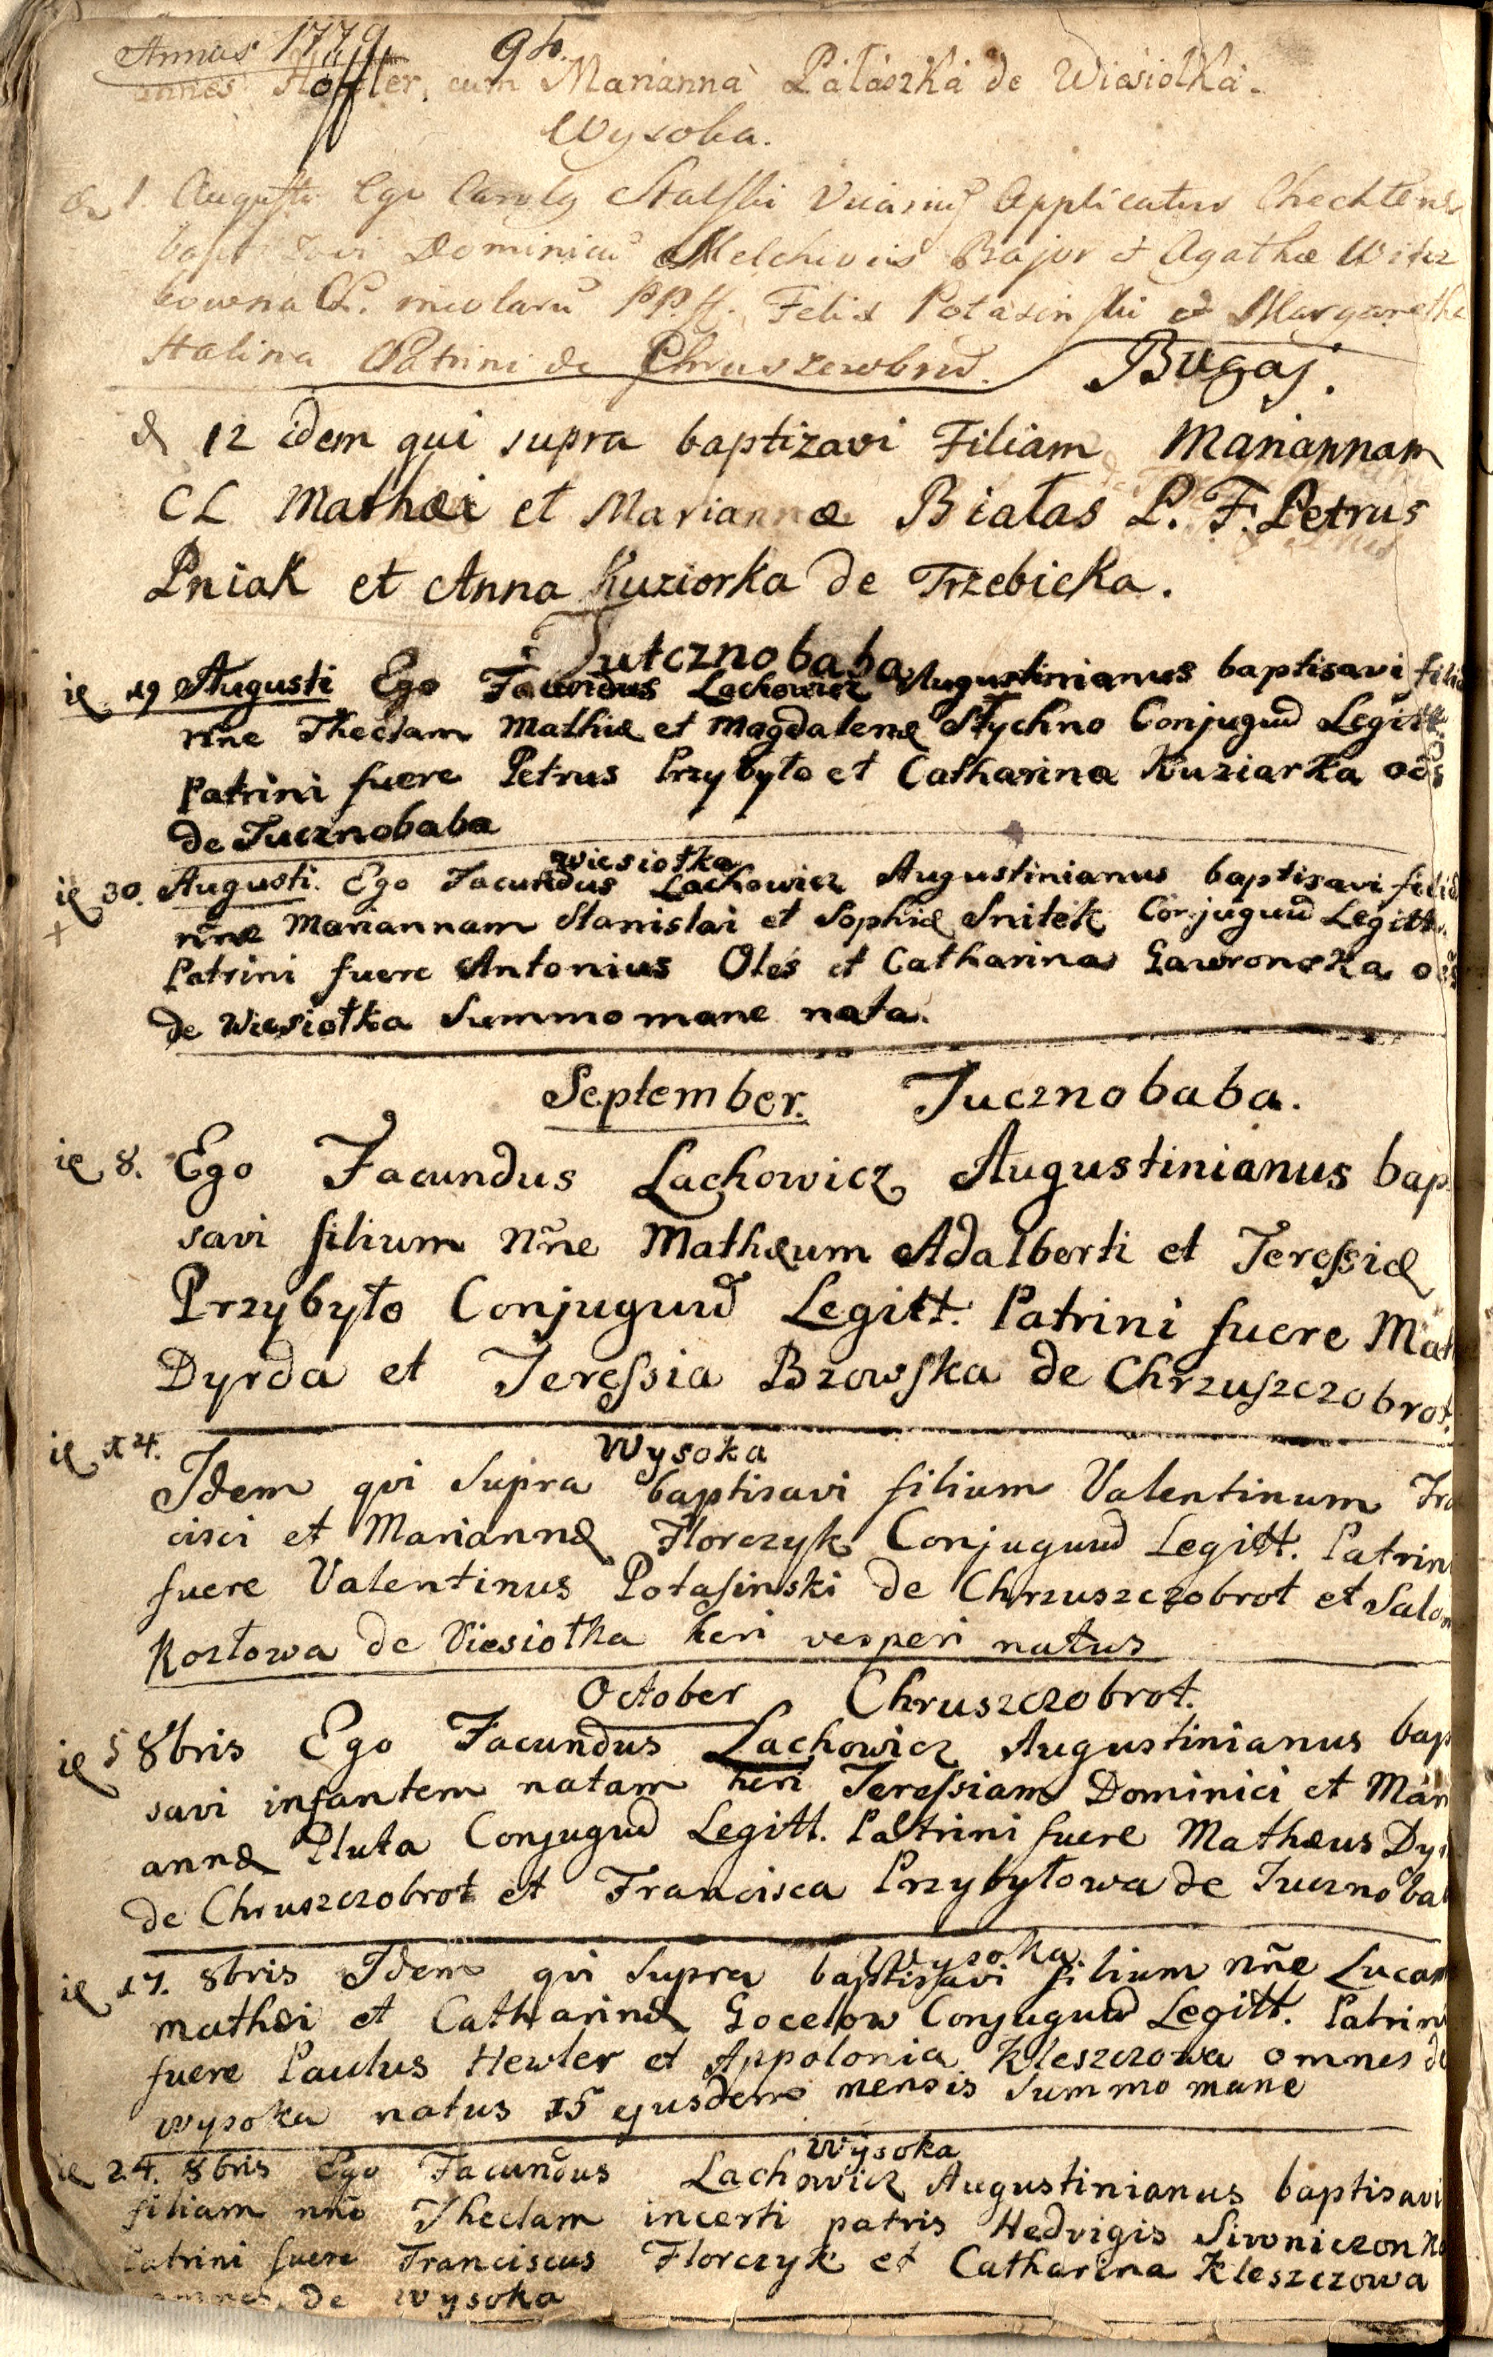 Annus 1779 94.
annes Hoffler, cum Marianna Pałaszka de Wiesiołka.
Wysoka.
1 Augusti Ego Carolg Stalski Vicariuş Applicatus Chechlens
Dominicū Melchioris Bajor et Agathæ
PP.ff. Felix Potasinski et Margaretha
Halina Patrini de
Bugaj.
d 12 idem qui supra baptizavi Filiam Mariannam
CL Mathæi et Mariannæ Białas P. F. Petrus
Pniak et Anna Kuziorka de Trzebicka.
Tutcznobaba
ie 19 Augusti Ego Facundus Lachowicz Augustinianus baptisavi filia
nñe Theclam Mathiæ et Magdalenæ Stychno Conjuguū Legitt
Patrini fuere Petrus Przybyło et Catharina Kuziarka oēs
de Tucznobaba
Wiesiotka
ie 30. Augusti. Ego Facundus Lachowicz Augustinianus baptisavi filiā
nñe Mariannam Stanislai et Sophiæ Snitek Conjuguū Legitt.
Patrini fuere Antonius Oleś et Catharina Gawronska
de Wiesiotka Summo mane nata.
September. Tucznobaba.
ie 8. Ego Facundus Lachowicz Augustinianus bap
savi filium nñe Mathæum Adalberti et Teressiæ
Przybyło Conjuguū Legitt. Patrini fuere Mat
Dyrda et Teressia Bzowska de Chrzuszczobrot.
ie 14. Wysoka
Idem qvi Supra baptisavi filium Valentinum Fra
cisci et Mariannæ Florczyk Conjuguū Legitt. Patrin
fuere Valentinus Potasinski de Chrzuszczobrot et Salom
Kozłowa de Viesiotka heri vesperi natus
October Chruszczobrot.
ie 5 8bris Ego Facundus Lachowicz Augustinianus bap
savi infantem natam heri Teressiam Dominici et Mari
annæ Pluta Conjuguū Legitt. Patrini fuere Mathæus Dy
de Chruszczobrot et Francisca Przybyłowa de Tucznobab
Wysoka
ie 17. 8bris Idem qvi Supra baptisavi filium nñe Lucam
mathæi et Catharinæ Gocelow Conjuguū Legitt. Patrini
fuere Paulus Hewler et Appolonia Kleszczowa omnes de
wysoka natus 15 ejusdem mensis Summo mane
Wysoka
ie 24. 8bris Ego Facundus Lachowicz Augustinianus baptisavi
filiam nñe Theclam incerti patris Hedvigis Sivoniczonka
Patrini fuere Franciscus Florczyk et Catharina Kleszczowa
omnes de wysoka